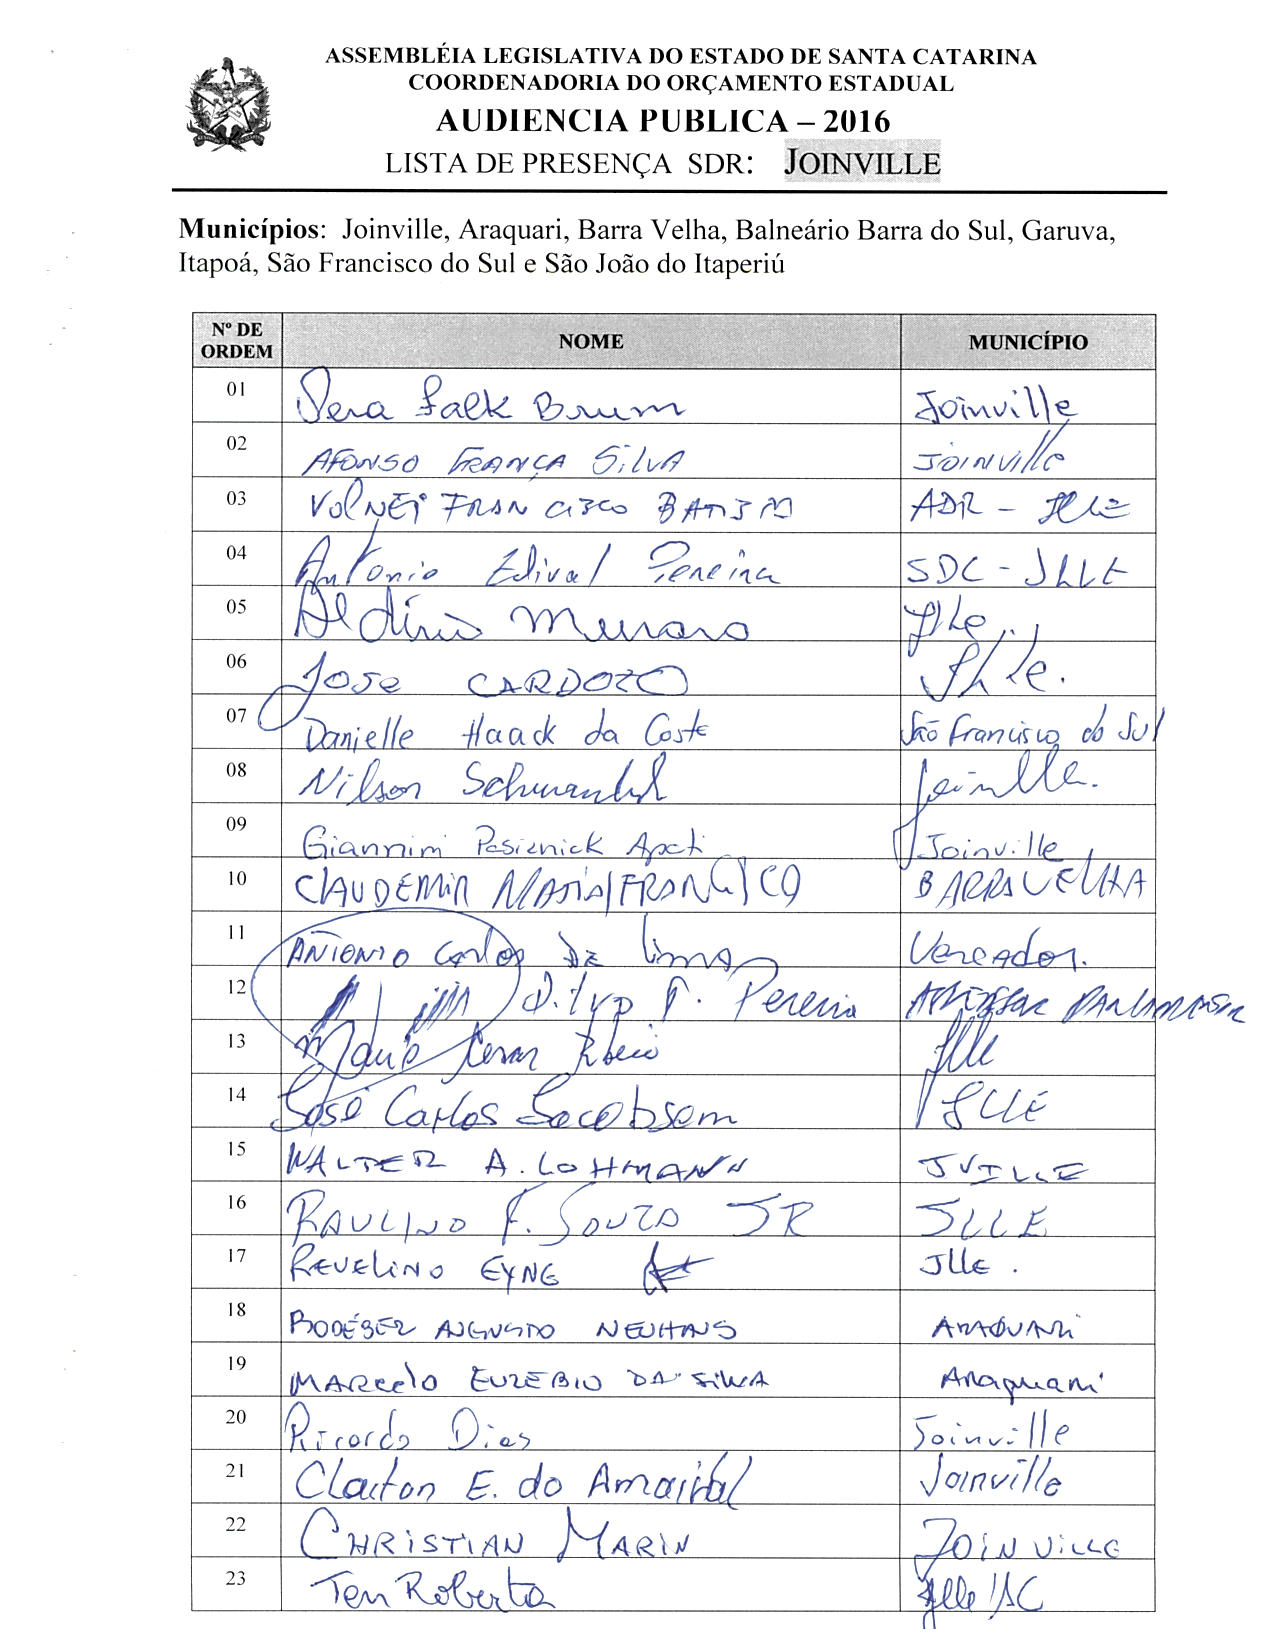 ASSEMBLÉIA LEGISLATIVA DO ESTADO DE SANTA CATARINA
COORDENADORIA DO ORÇAMENTO ESTADUAL
AUDIENCIA PUBLICA – 2016
LISTA DE PRESENÇA SDR: JOINVILLE
Municípios: Joinville, Araquari, Barra Velha, Balneário Barra do Sul, Garuva,
Itapoá, São Francisco do Sul e São João do Itaperiú
Nº DE ORDEM NOME MUNICÍPIO
01 Vera Falk Brum Joinville
02 AFONSO FRANÇA SILVA JOINVILLE
03 VOLNEI FRANCISCO BATISTA ADR - JLLE
04 Antonio Edival Pereira SDC - JLLE
05 Aldirio Jlle.
06 JOSE CARDOZO Jlle.
07 Danielle Haack da Costa São Francisco do Sul
08 Nilson Joinville.
09 Giannini Pasiznick Apati Joinville
10 CLAUDEMIR FRANCISCO BARRA VELHA
11 ANTONIO Carlos DE Lima Vereador.
12 T. Pereira PARLAMENTAR
13 Mario Cesar Jlle
14 José Carlos Jacobsem JLLE
15 WALTER A. LOHMANN JVILLE
16 RAULINO F. SOUZA JR JLLE
17 REVELINO EYNG Jlle.
18 AUGUSTO NEUHAUS ARAQUARI
19 MARCELO EUZEBIO DA SILVA Araquari
20 Ricardo Dias Joinville
21 Claiton E. do Joinville
22 CHRISTIAN MARIN JOINVILLE
23 Ten Roberta Jlle/SC